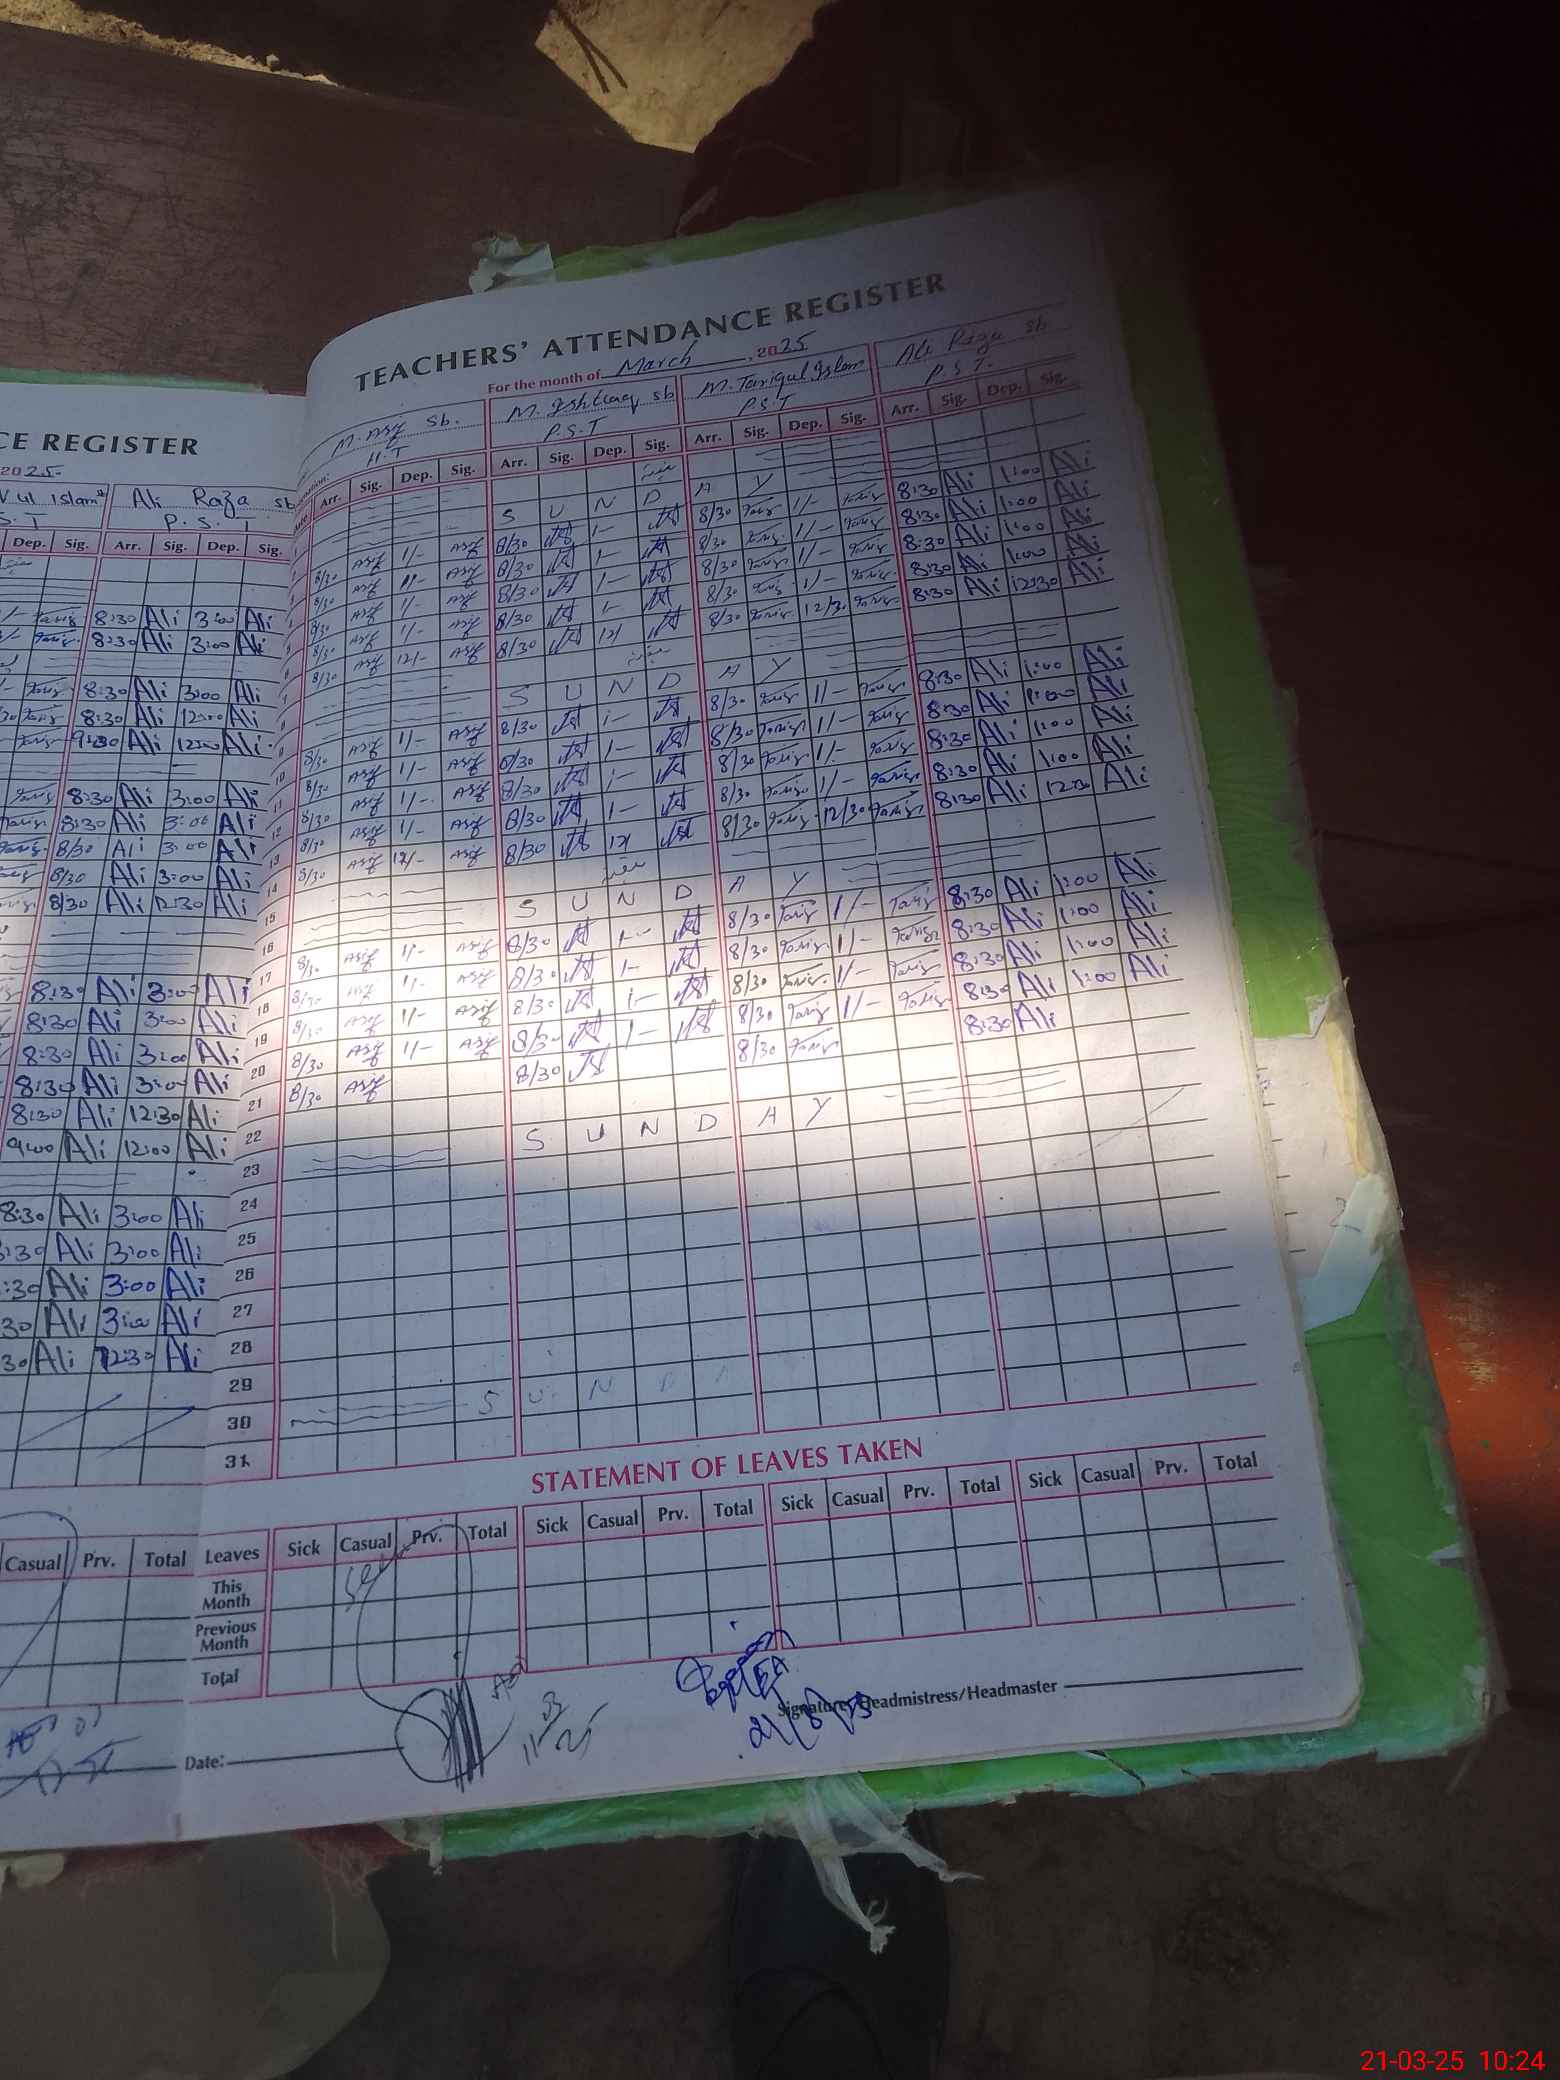 CE REGISTER
2025
V ul Islam Sb Ali Raza Sb
S. T P. S. T
Dep. Sig. Arr. Sig. Dep. Sig.
8:30 Ali 3:00 Ali
8:30 Ali 3:00 Ali
8:30 Ali 3:00 Ali
8:30 Ali 12:00 Ali
9:30 Ali 12:00 Ali
8:30 Ali 3:00 Ali
8:30 Ali 3:00 Ali
8/30 Ali 3:00 Ali
8/30 Ali 3:00 Ali
8/30 Ali 12:30 Ali
8:30 Ali 3:00 Ali
8:30 Ali 3:00 Ali
8:30 Ali 3:00 Ali
8:30 Ali 3:00 Ali
8:30 Ali 12:30 Ali
9:00 Ali 12:00 Ali
8:30 Ali 3:00 Ali
:30 Ali 3:00 Ali
:30 Ali 3:00 Ali
30 Ali 3:00 Ali
30 Ali 12:30 Ali
Casual Prv. Total
TEACHERS' ATTENDANCE REGISTER
For the month of March, 2025
M. Asif Sb. M. Ishtiaq Sb M. Tariqul Islam Ali Raza Sb
H.T P.S.T P.S.T P.S.T.
Arr. Sig. Dep. Sig. Arr. Sig. Dep. Sig. Arr. Sig. Dep. Sig. Arr. Sig. Dep. Sig.
1
2 S U N D A Y
3 8/30 Asif 1/- Asif 8/30 1- 8/30 Tariq 1/- Tariq 8:30 Ali 1:00 Ali
4 8/30 Asif 1/- Asif 8/30 1- 8/30 Tariq 1/- Tariq 8:30 Ali 1:00 Ali
5 8/30 Asif 1/- Asif 8/30 1- 8/30 Tariq 1/- Tariq 8:30 Ali 1:00 Ali
6 8/30 Asif 1/- Asif 8/30 1- 8/30 Tariq 1/- Tariq 8:30 Ali 1:00 Ali
7 8/30 Asif 12/- Asif 8/30 12 8/30 Tariq 12/30 Tariq 8:30 Ali 12:30 Ali
8
9 S U N D A Y
10 8/30 Asif 1/- Asif 8/30 1- 8/30 Tariq 1/- Tariq 8:30 Ali 1:00 Ali
11 8/30 Asif 1/- Asif 8/30 1- 8/30 Tariq 1/- Tariq 8:30 Ali 1:00 Ali
12 8/30 Asif 1/- Asif 8/30 1- 8/30 Tariq 1/- Tariq 8:30 Ali 1:00 Ali
13 8/30 Asif 1/- Asif 8/30 1- 8/30 Tariq 1/- Tariq 8:30 Ali 1:00 Ali
14 8/30 Asif 12/- Asif 8/30 12 8/30 Tariq 12/30 Tariq 8:30 Ali 12:30 Ali
15
16 S U N D A Y
17 8/30 Asif 1/- Asif 8/30 1- 8/30 Tariq 1/- Tariq 8:30 Ali 1:00 Ali
18 8/30 Asif 1/- Asif 8/30 1- 8/30 Tariq 1/- Tariq 8:30 Ali 1:00 Ali
19 8/30 Asif 1/- Asif 8/30 1- 8/30 Tariq 1/- Tariq 8:30 Ali 1:00 Ali
20 8/30 Asif 1/- Asif 8/30 1- 8/30 Tariq 1/- Tariq 8:30 Ali 1:00 Ali
21 8/30 Asif 8/30 8/30 Tariq 8:30 Ali
22
23 S U N D A Y
24
25
26
27
28
29
30 S U N D A
31
STATEMENT OF LEAVES TAKEN
Leaves Sick Casual Prv. Total Sick Casual Prv. Total Sick Casual Prv. Total Sick Casual Prv. Total
This Month
Previous Month
Total
Seen
Date:
Signature Headmistress/Headmaster
21-03-25 10:24